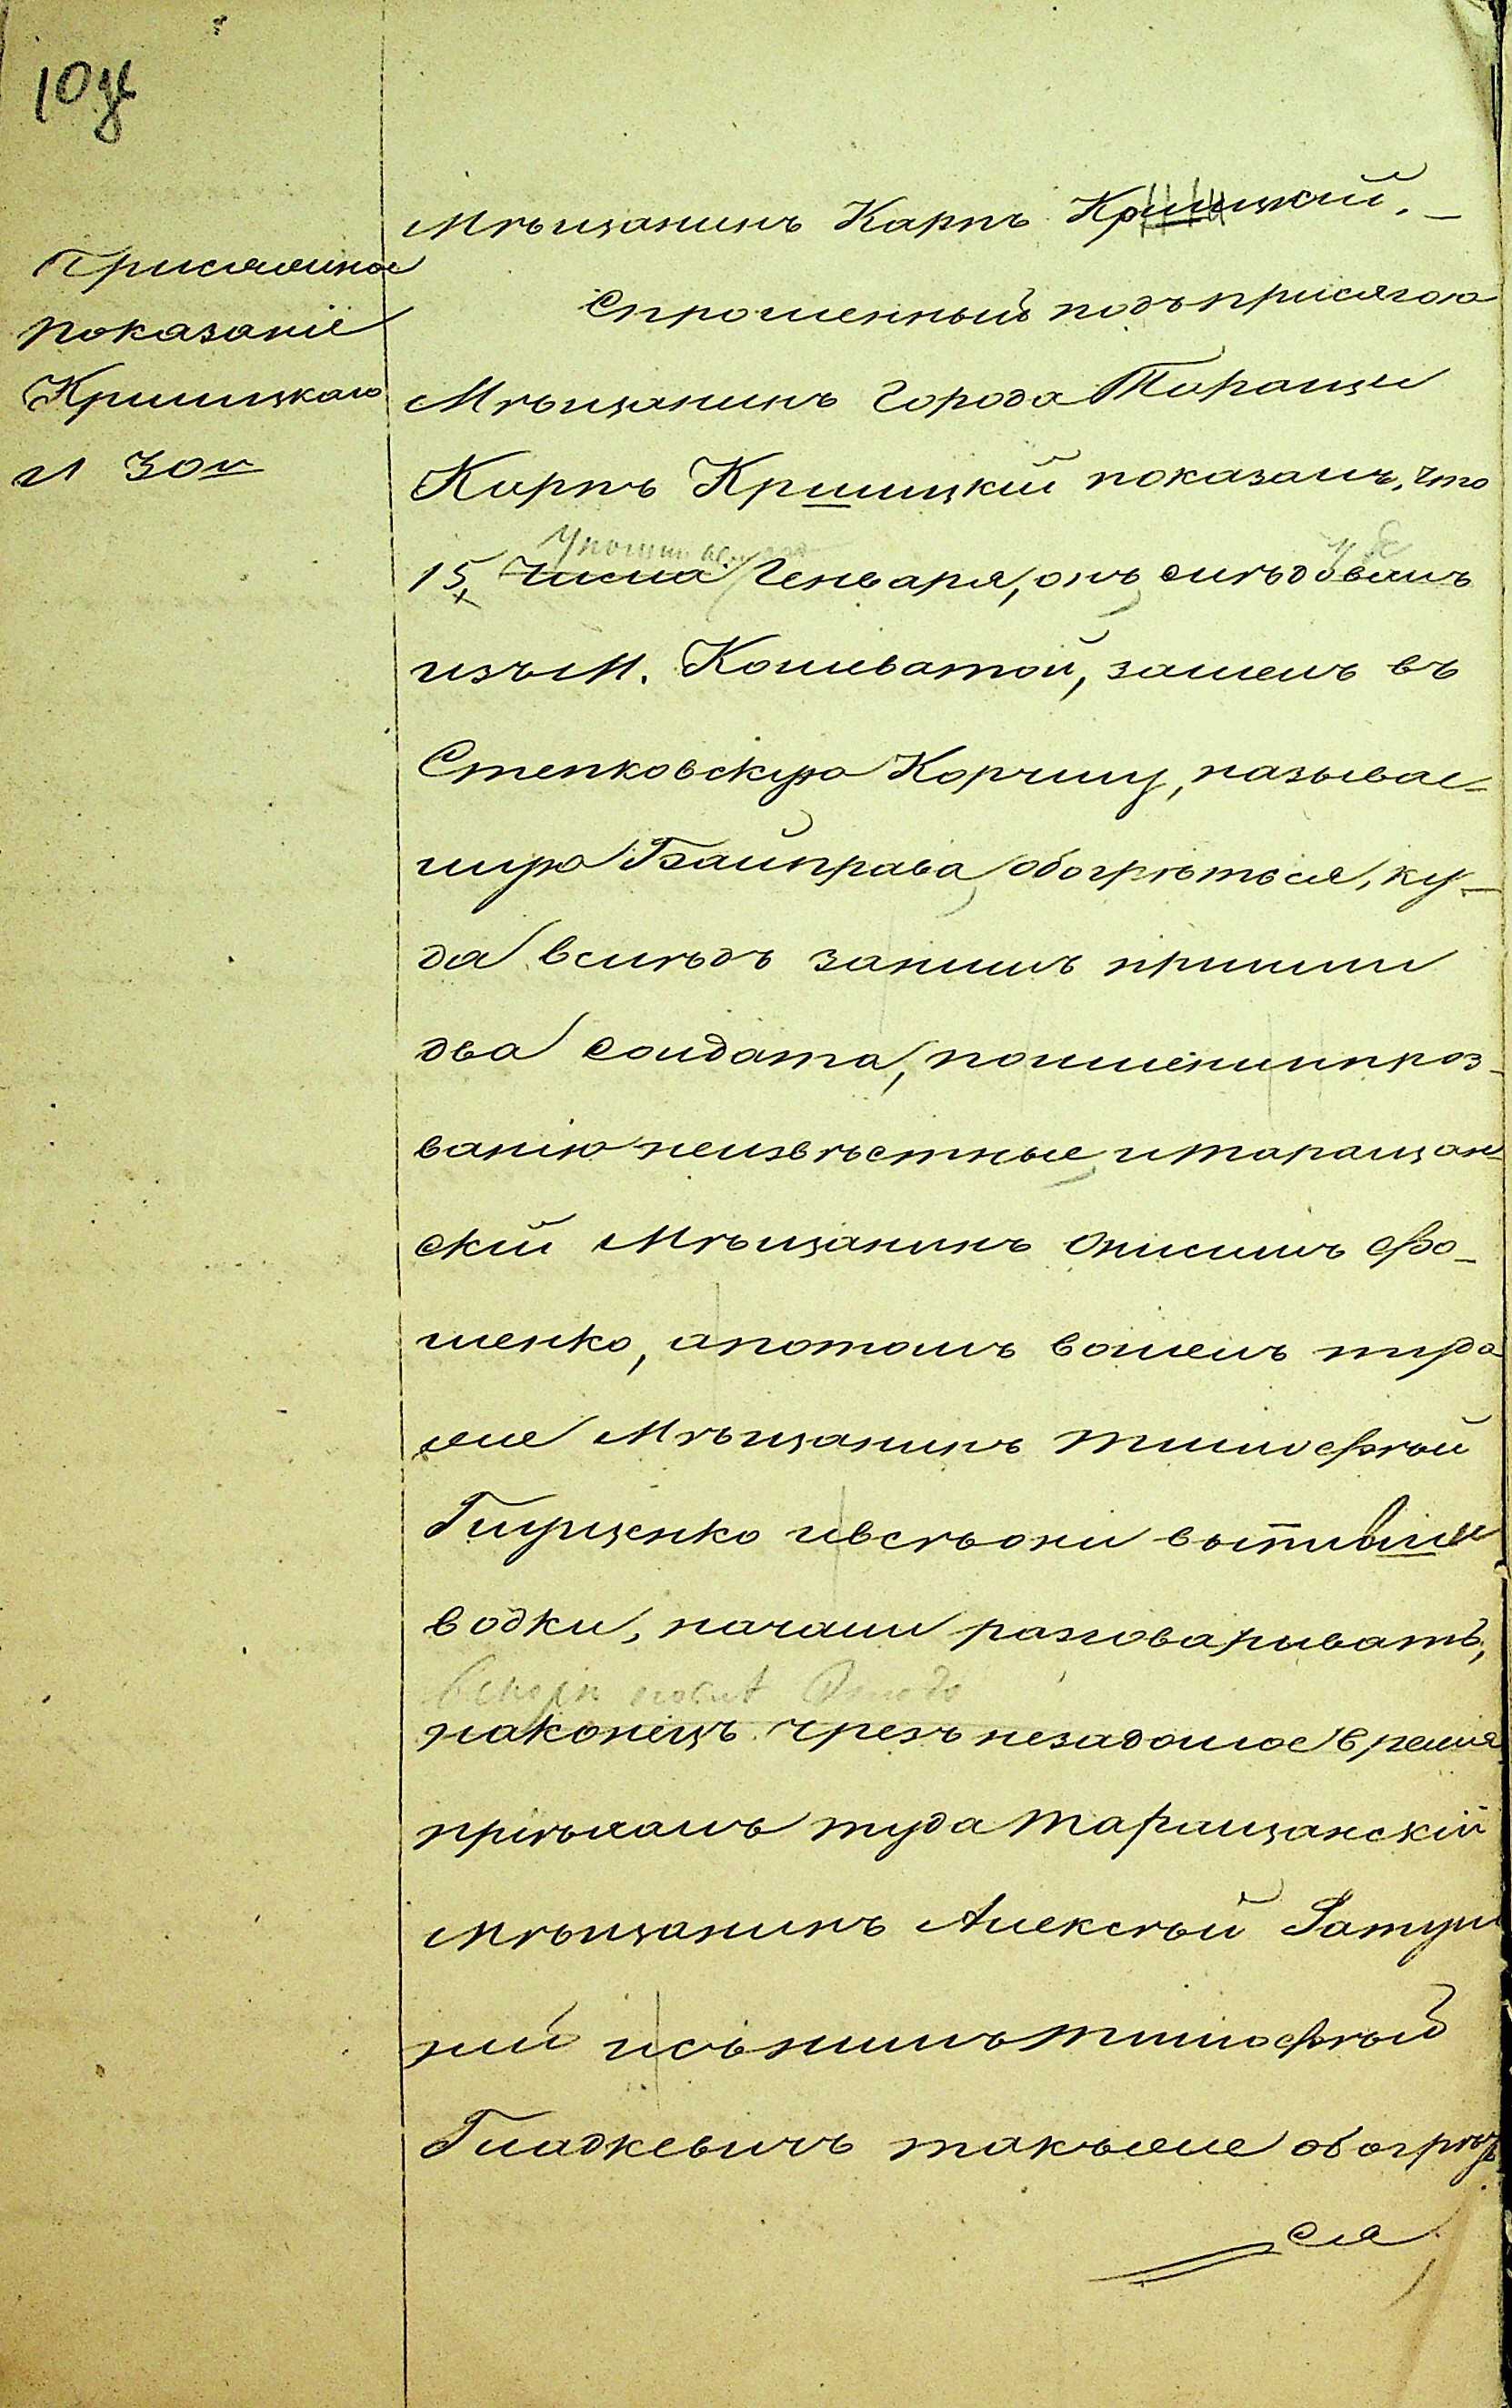 Присяжное
показаніе
Кришицкаго
л 30й
Мѣщанинъ Карпъ Кришицкій. —
Спрошенный подъ присягою
Мѣщанинъ города Таращи
Карпъ Кришицкій показалъ, что
15, числа Генваря, онъ слѣдовалъ
изъ М. Кошеватой, зашелъ въ
Степковскую Корчму, называе-
мую Байправа, обогрѣться, ку-
да вслѣдъ занимъ пришли
два солдата, поимени и проз-
ванію неизвѣстные, и таращан-
скій Мѣщанинъ Онисимъ Фо-
менко, апотомъ вошелъ туда
же Мѣщанинъ Тимофѣй
Глущенко ивсѣ они выпивши
водки, начали разговаривать,
наконецъ чрезъ незадолгое время
пріѣхалъ туда Таращанскій
Мѣщанинъ Алексѣй
ній исънимъ Тимофѣй
Гладкевичъ такъже обогрѣть
ся